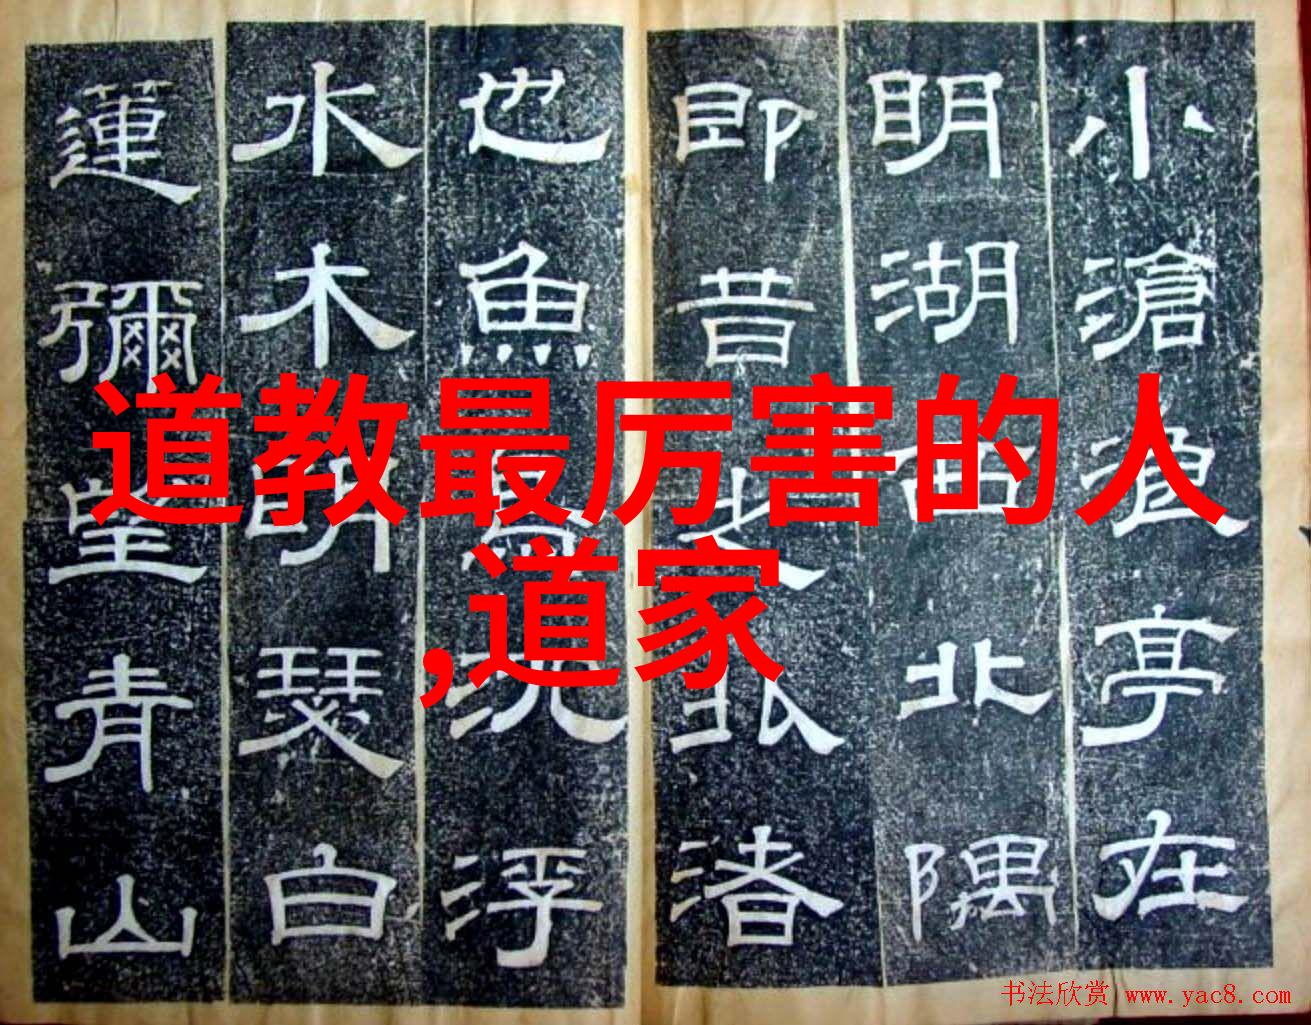 小滄浪亭在
明湖西北隅
即昔之北渚
也魚鳥沉浮
水木明瑟白
蓮彌望青山
道教最厉害的人
,道家
书法欣赏 www.yac8.com